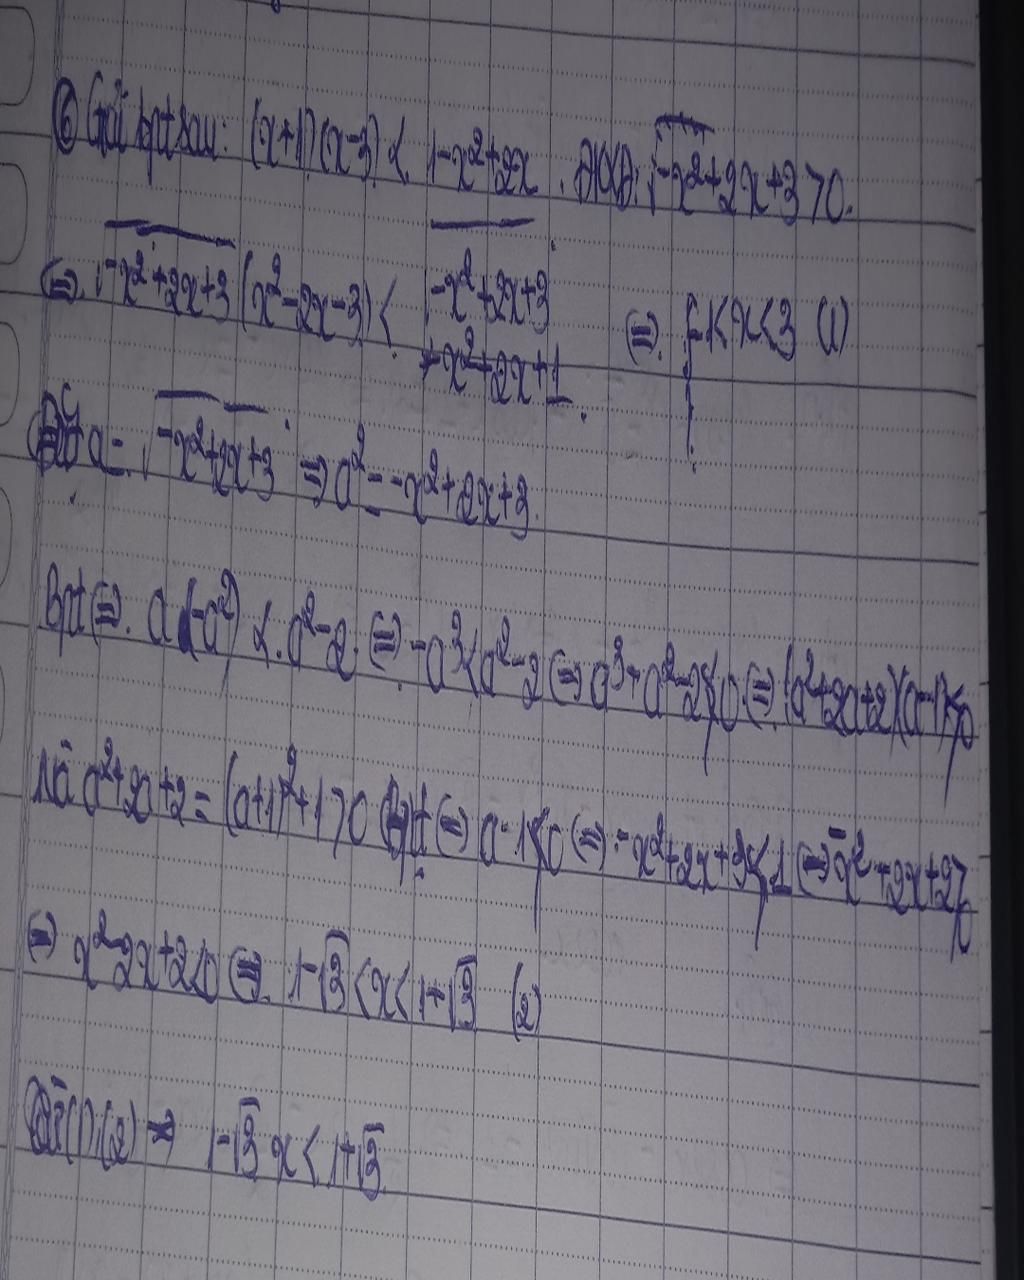 ⑥ Giải bpt sau: (x+1)(x-3) < 1-x²+2x. ĐKXĐ: √-x²+2x+3 > 0.
⇔ √-x²+2x+3 (x²-2x-3) < -x²+2x+3 ⇔ {-1<x<3 (1)
-x²+2x+1.
Đặt a = √-x²+2x+3 ⇒ a² = -x²+2x+3.
Bpt ⇔ a(-a²) < a²-2 ⇔ -a³<a²-2 ⇔ a³+a²-2>0 ⇔ (a²+2a+2)(a-1)>0
Mà a²+2a+2 = (a+1)²+1>0 Bpt ⇔ a-1>0 ⇔ -x²+2x+3>1 ⇔ -x²+2x+2>0
⇔ x²-2x+2<0 ⇔ 1-√3 <x< 1+√3 (2)
Từ (1),(2) ⇒ 1-√3 x < 1+√3